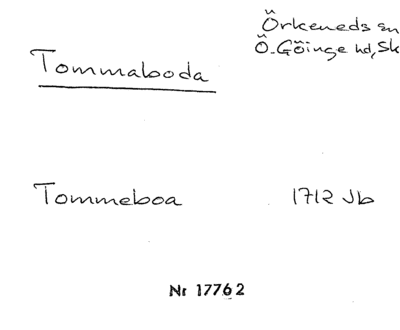 Örkeneds sn
Ö. Göinge hd, Sk
Tommaboda
Tommeboa 1712 Jb
Nr 17762